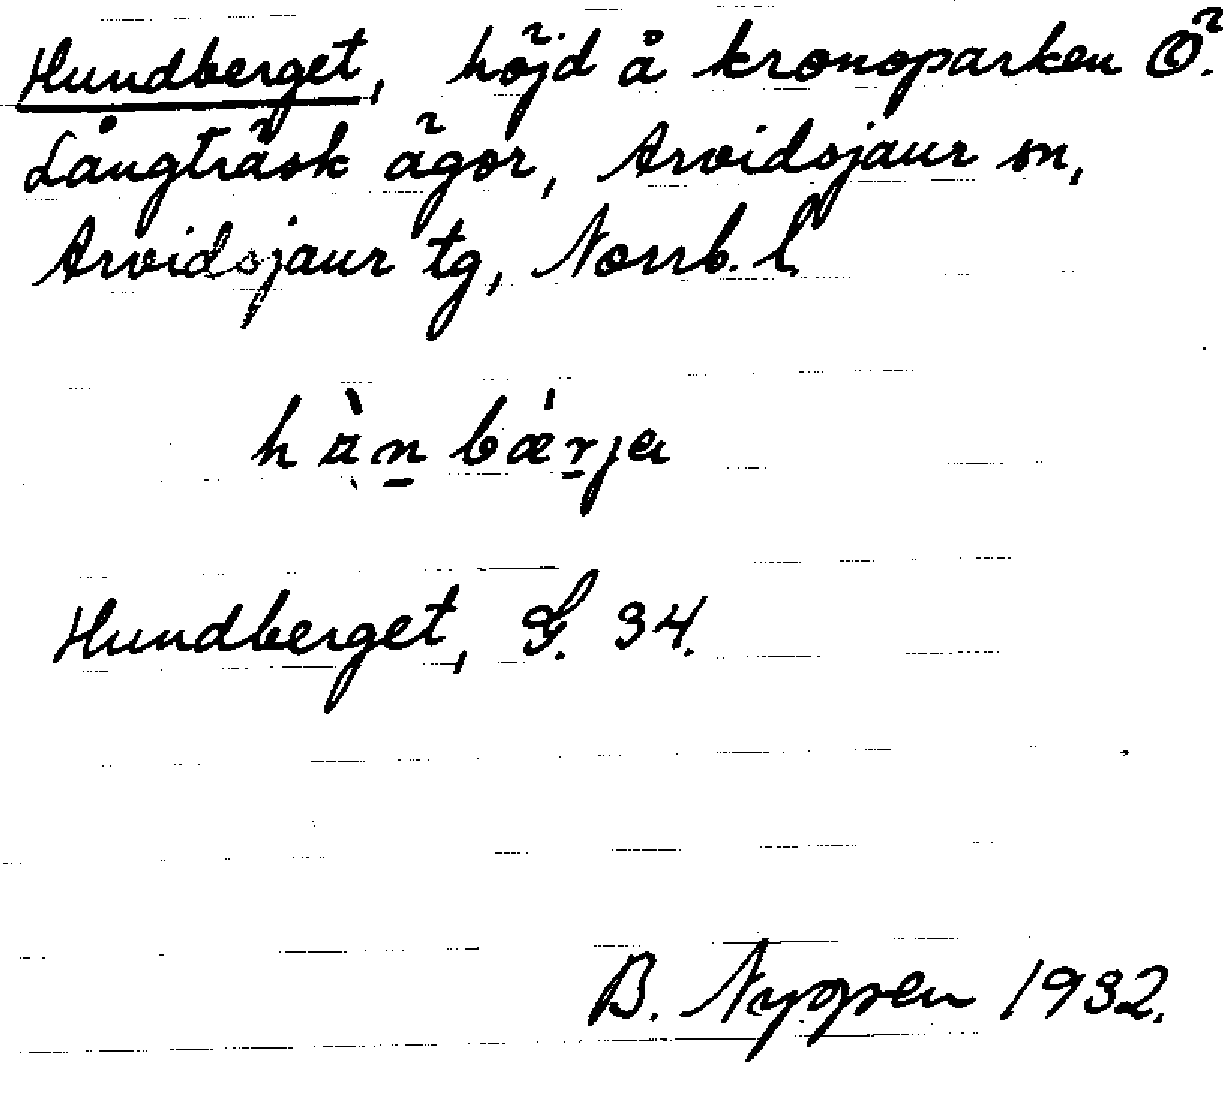 Hundberget, höjd å kronoparken Ö.
Långträsk ägor, Arvidsjaur sn,
Arvidsjaur tg, Norrb. l
Hundberget, G. 34.
B. 1932.